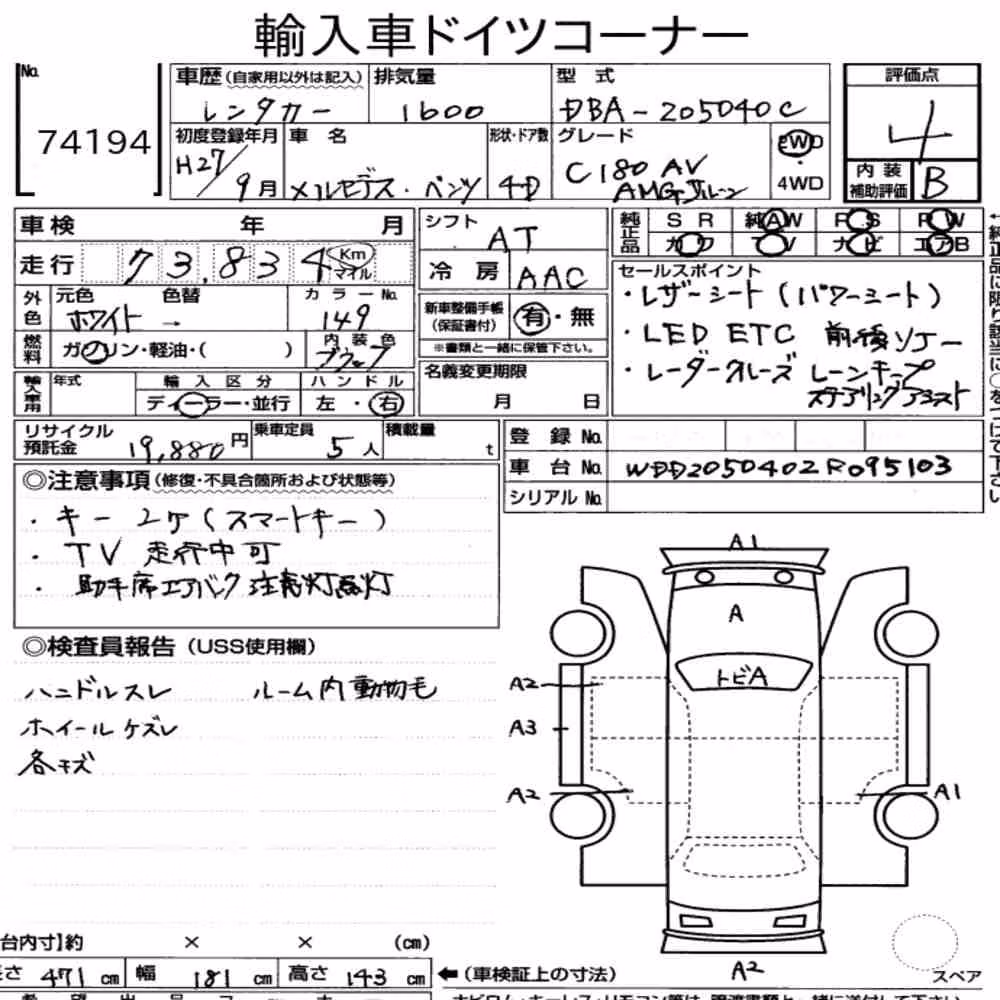 輸入車ドイツコーナー
No.
74194
車歴(自家用以外は記入) 排気量 型式
レンタカー 1600 DBA-205040C
評価点
4
初度登録年月 車名 形状・ドア数 グレード
H27/9月 メルセデス・ベンツ 4D C180 AV
AMGライン
2WD
・
4WD
内装
補助評価 B
車検 年 月
走行 73,834 Km マイル
シフト AT
冷房 AAC
純正品 SR 純AW PS PW
カワ TV ナビ エアB
外色 元色 色替 カラーNo.
ホワイト → 149
新車整備手帳
(保証書付) 有・無
※書類と一緒に保管下さい。
セールスポイント
・レザーシート(パワーシート)
・LED ETC 前後ソナー
・レーダークルーズ レーンキープ
ステアリングアシスト
燃料 ガソリン・軽油・( ) 内装色
名義変更期限
月 日
輸入車用 年式 輸入区分 ハンドル
ディーラー・並行 左・右
リサイクル
預託金 19,880円 乗車定員 5人 積載量 t
登録No.
車台No. WDD2050402R095103
シリアルNo.
◎注意事項(修復・不具合箇所および状態等)
・キー 2ケ(スマートキー)
・TV 走行中可
・助手席エアバック 注意灯点灯
◎検査員報告(USS使用欄)
ハンドルスレ ルーム内動物毛
ホイールケズレ
各キズ
A1
A
トビA
A2
A3
A2
A1
A2
スペア
台内寸】約 × × (cm)
長さ 471cm 幅 181cm 高さ 143cm
←(車検証上の寸法)